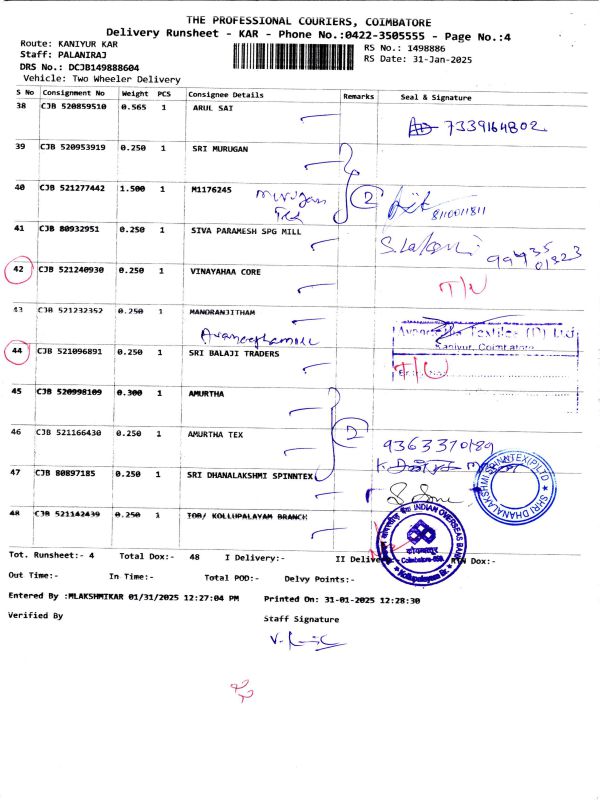 THE PROFESSIONAL COURIERS, COIMBATORE
Delivery Runsheet - KAR - Phone No.:0422-3505555 - Page No.:4
Route: KANIYUR KAR
RS No.: 1498886
Staff: PALANIRAJ
RS Date: 31-Jan-2025
DRS No.: DCJB149888604
Vehicle: Two Wheeler Delivery
S No Consignment No Weight PCS Consignee Details Remarks Seal & Signature
38 CJB 520859510 0.565 1 ARUL SAI
7339164802
39 CJB 520953919 0.250 1 SRI MURUGAN
40 CJB 521277442 1.500 1 M1176245 Murugan Tex 2
8110011811
41 CJB 80932951 0.250 1 SIVA PARAMESH SPG MILL
99435 01323
42 CJB 521240930 0.250 1 VINAYAHAA CORE
T/U
43 CJB 521232352 0.250 1 MANORANJITHAM
Kaniyur, Coimbatore
44 CJB 521096891 0.250 1 SRI BALAJI TRADERS
T/U
45 CJB 520998109 0.300 1 AMURTHA
46 CJB 521166430 0.250 1 AMURTHA TEX 2
9363370189
47 CJB 80897185 0.250 1 SRI DHANALAKSHMI SPINNTEX
SHRI DHANALAKSHMI SPINNTEX(P)LTD
48 CJB 521142439 0.250 1 IOB/ KOLLUPALAYAM BRANCH
INDIAN OVERSEAS BANK
कोयम्बत्तूर
Tot. Runsheet:- 4 Total Dox:- 48 I Delivery:- II Delivery:- RTN Dox:-
Out Time:- In Time:- Total POD:- Delvy Points:-
Entered By :MLAKSHMIKAR 01/31/2025 12:27:04 PM Printed On: 31-01-2025 12:28:30
Verified By Staff Signature